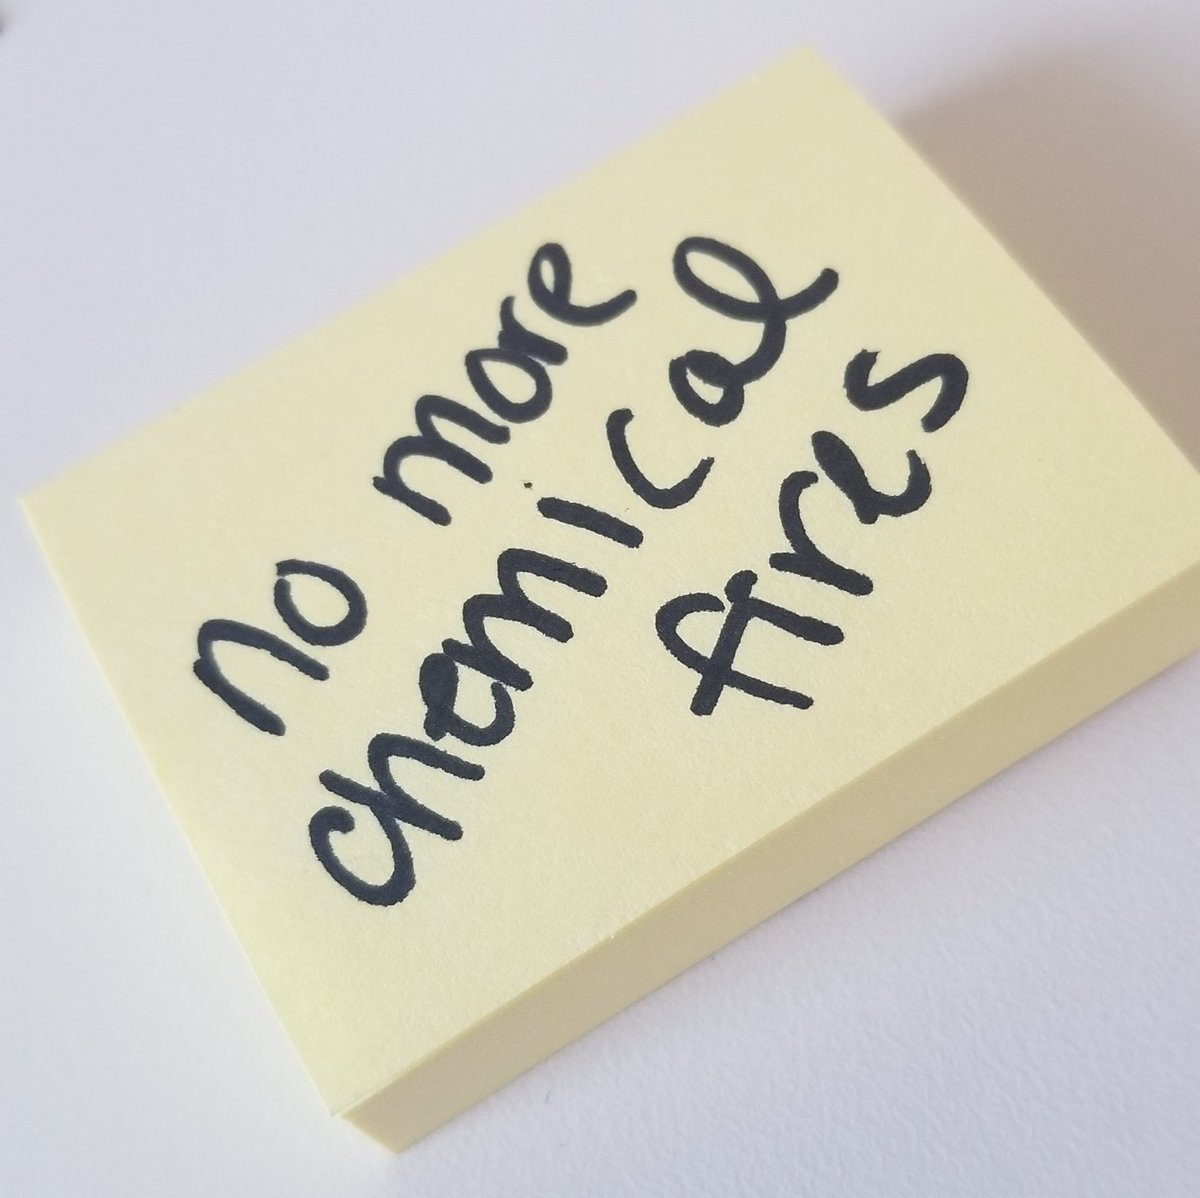 no more
chemical
fires